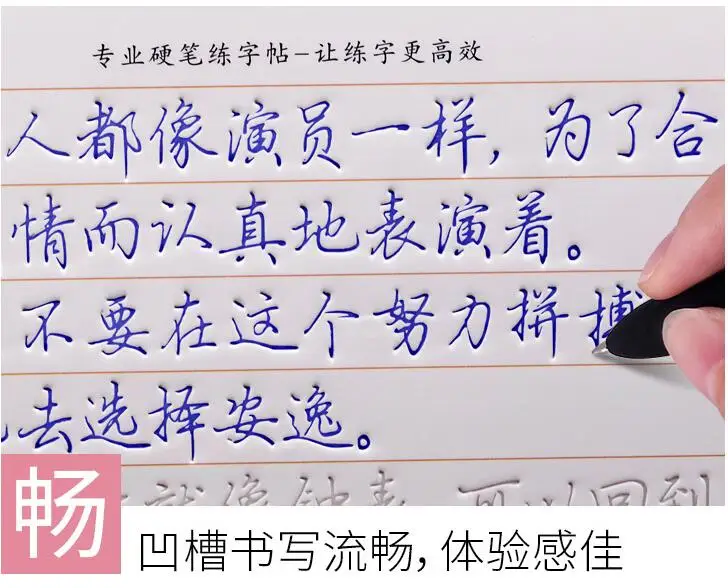 专业硬笔练字帖-让练字更高效
人都像演员一样，为了合
情而认真地表演着。
不要在这个努力拼搏
去选择安逸。
就像钟表，可以回到
畅
凹槽书写流畅，体验感佳